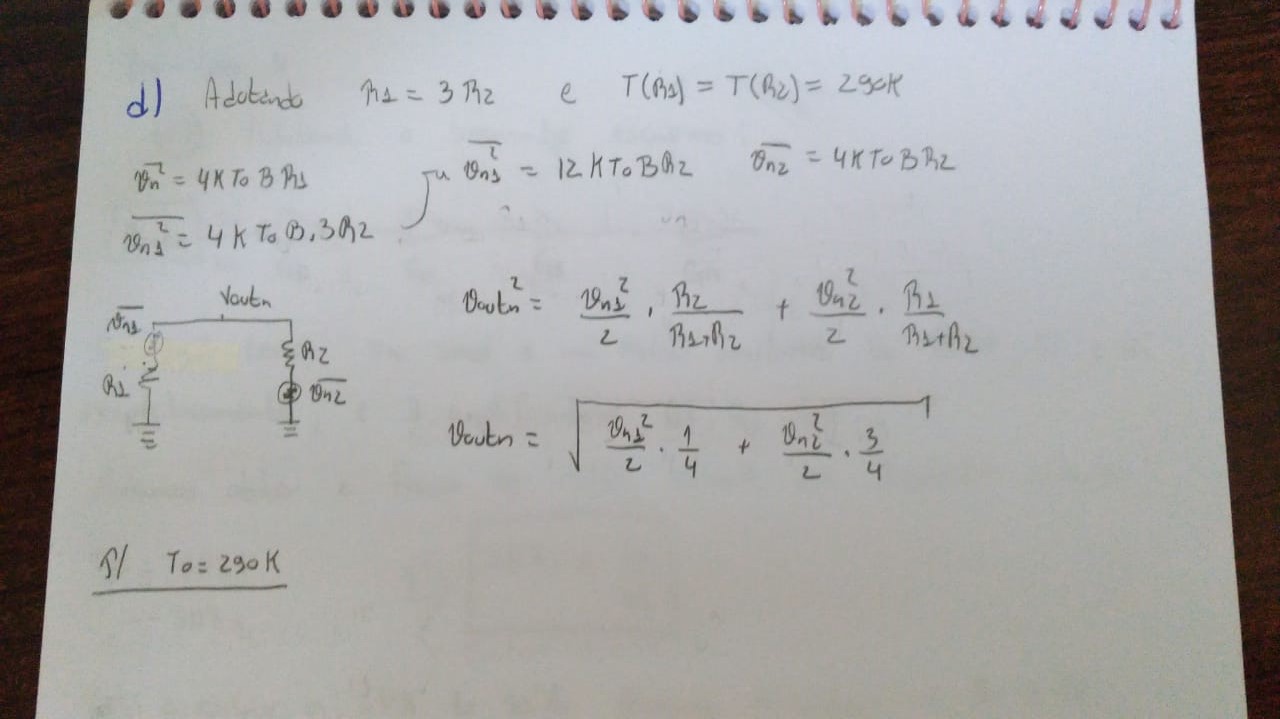 d) Adotando R1 = 3 R2 e T(R1) = T(R2) = 290K
v̅n̅² = 4KToBR1
v̅n̅1̅² = 4KToB.3R2
v̅n̅1̅² = 12KToBR2
v̅n̅2̅ = 4KToBR2
Voutn
v̅n̅1̅
R1
R2
v̅n̅2̅
Voutn² = Vn1²/2 . R2/(R1+R2) + Vn2²/2 . R1/(R1+R2)
Voutn = √(Vn1²/2 . 1/4 + Vn2²/2 . 3/4)
P/ To = 290K